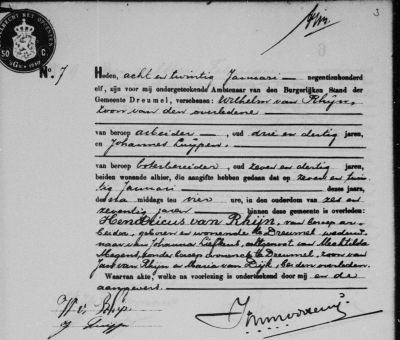 3
50 C.
No. 7
Heden, acht en twintig Januari — negentienhonderd
elf, zijn voor mij ondergeteekende Ambtenaar van den Burgerlijken Stand der
Gemeente Dreumel, verschenen: Wilhelm van Rhijn,
zoon van den overledene
van beroep arbeider —, oud drie en dertig jaren,
en Johannes Kuijpers
van beroep boterbereider, oud zeven en dertig jaren,
beiden wonende alhier, die aangifte hebben gedaan dat op zeven en twin-
tig Januari — dezes jaars,
des na middags te vier ure, in den ouderdom van zes en
zeventig jaren — binnen deze gemeente is overleden:
Hendricus van Rhijn, van beroep ar-
beider, geboren en wonende te Dreumel, weduw-
naar van Johanna, echtgenoot van Mechtilda
Megens, zonder beroep, wonende te Dreumel, zoon van
van Rhijn en Maria van, beiden overleden.
Waarvan akte, welke na voorlezing is onderteekend door mij en de
aangevers.